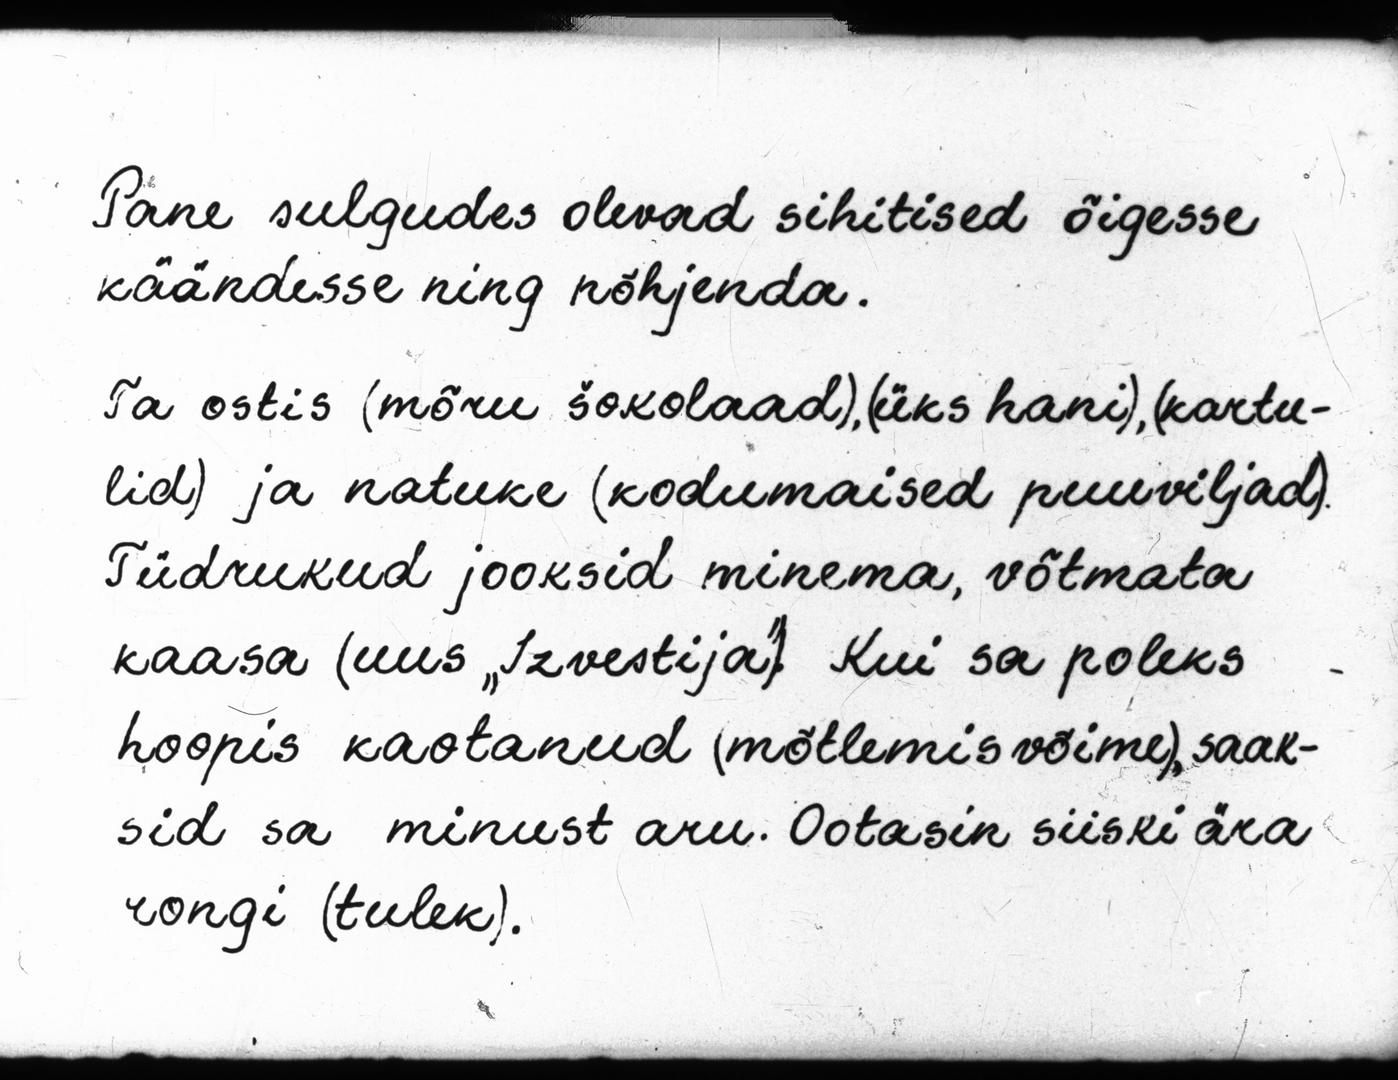 Pane sulgudes olevad sihitised õigesse
käändesse ning põhjenda.
Ta ostis (mõru šokolaad), (üks hani), (kartu-
lid) ja natuke (kodumaised puuviljad).
Tüdrukud jooksid minema, võtmata
kaasa (uus „Izvestija"). Kui sa poleks
hoopis kaotanud (mõtlemisvõime), saak-
sid sa minust aru. Ootasin siiski ära
rongi (tulek).